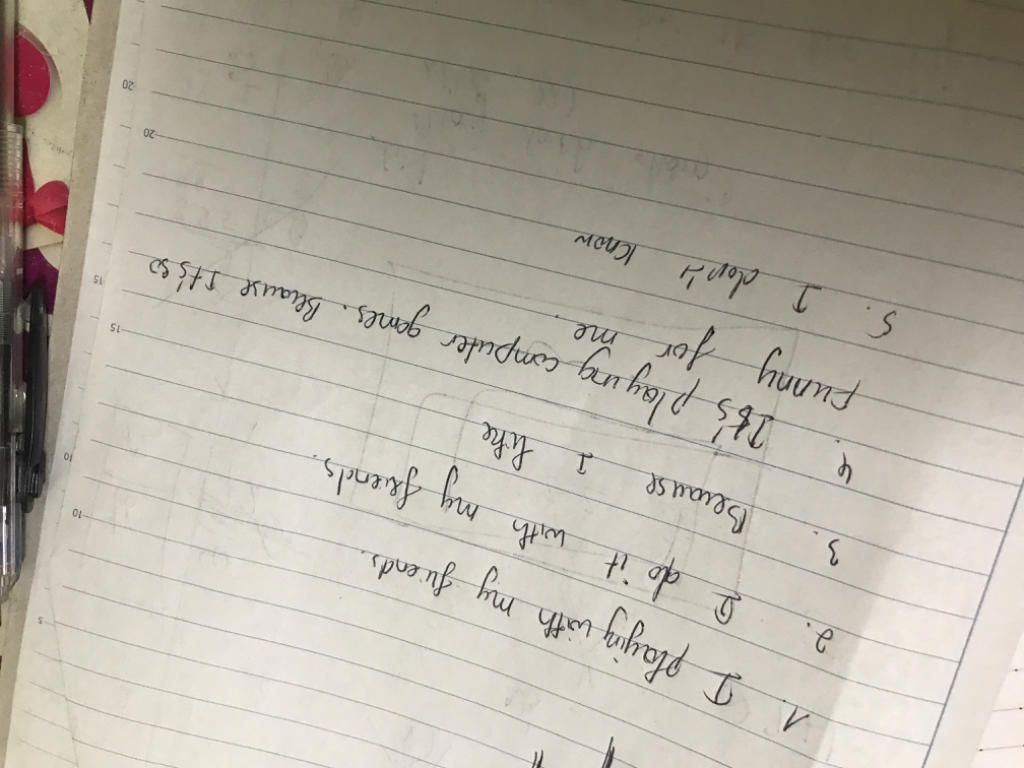 1. I playing with my friends.
2. I do it with my friends.
3. Because I like
4. It's playing computer games. Because It's so
funny for me.
5. I don't know
5
10
10
15
15
20
20